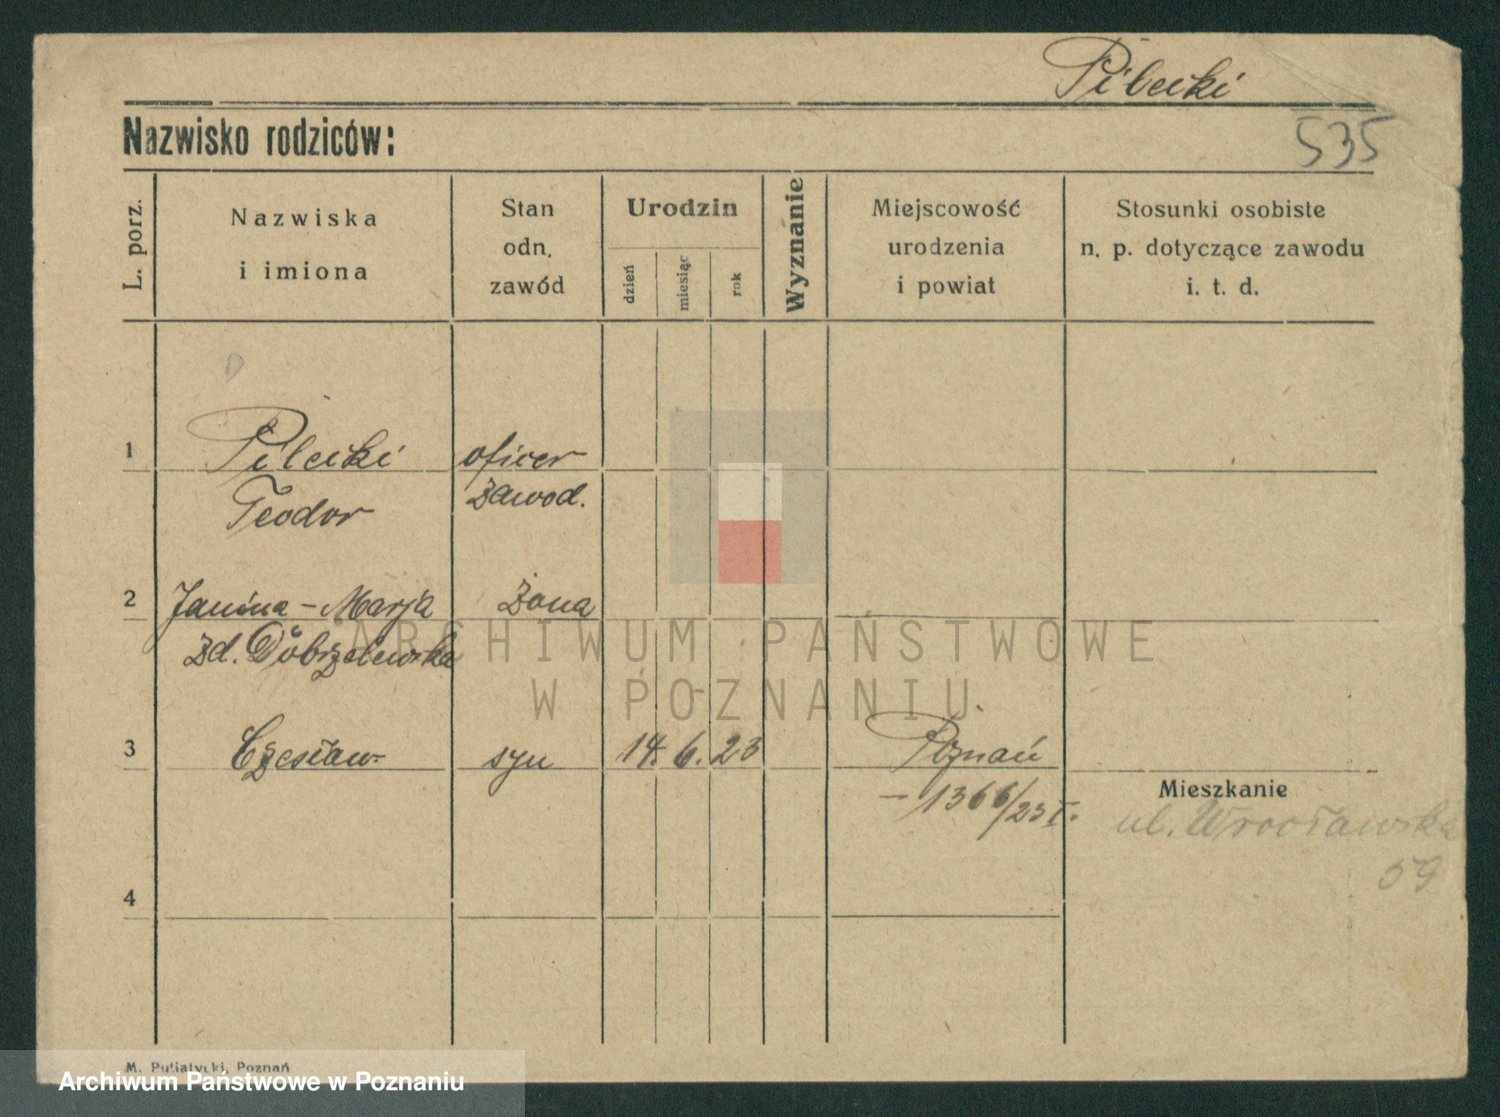 Pilecki
Nazwisko rodziców:
535
L. porz.
Nazwiska
i imiona
Stan
odn.
zawód
Urodzin
dzień
miesiąc
rok
Wyznanie
Miejscowość
urodzenia
i powiat
Stosunki osobiste
n. p. dotyczące zawodu
i. t. d.
1
Pilecki
oficer
Teodor
zawod.
2
Janina-Marja
żona
zd. Dobrzelewska
ARCHIWUM PAŃSTWOWE
W POZNANIU
3
Czesław
syn
14. 6. 23
Poznań
Mieszkanie
- 1366/23 I.
ul. Wrocławska
59
4
M. Putiatycki, Poznań
Archiwum Państwowe w Poznaniu